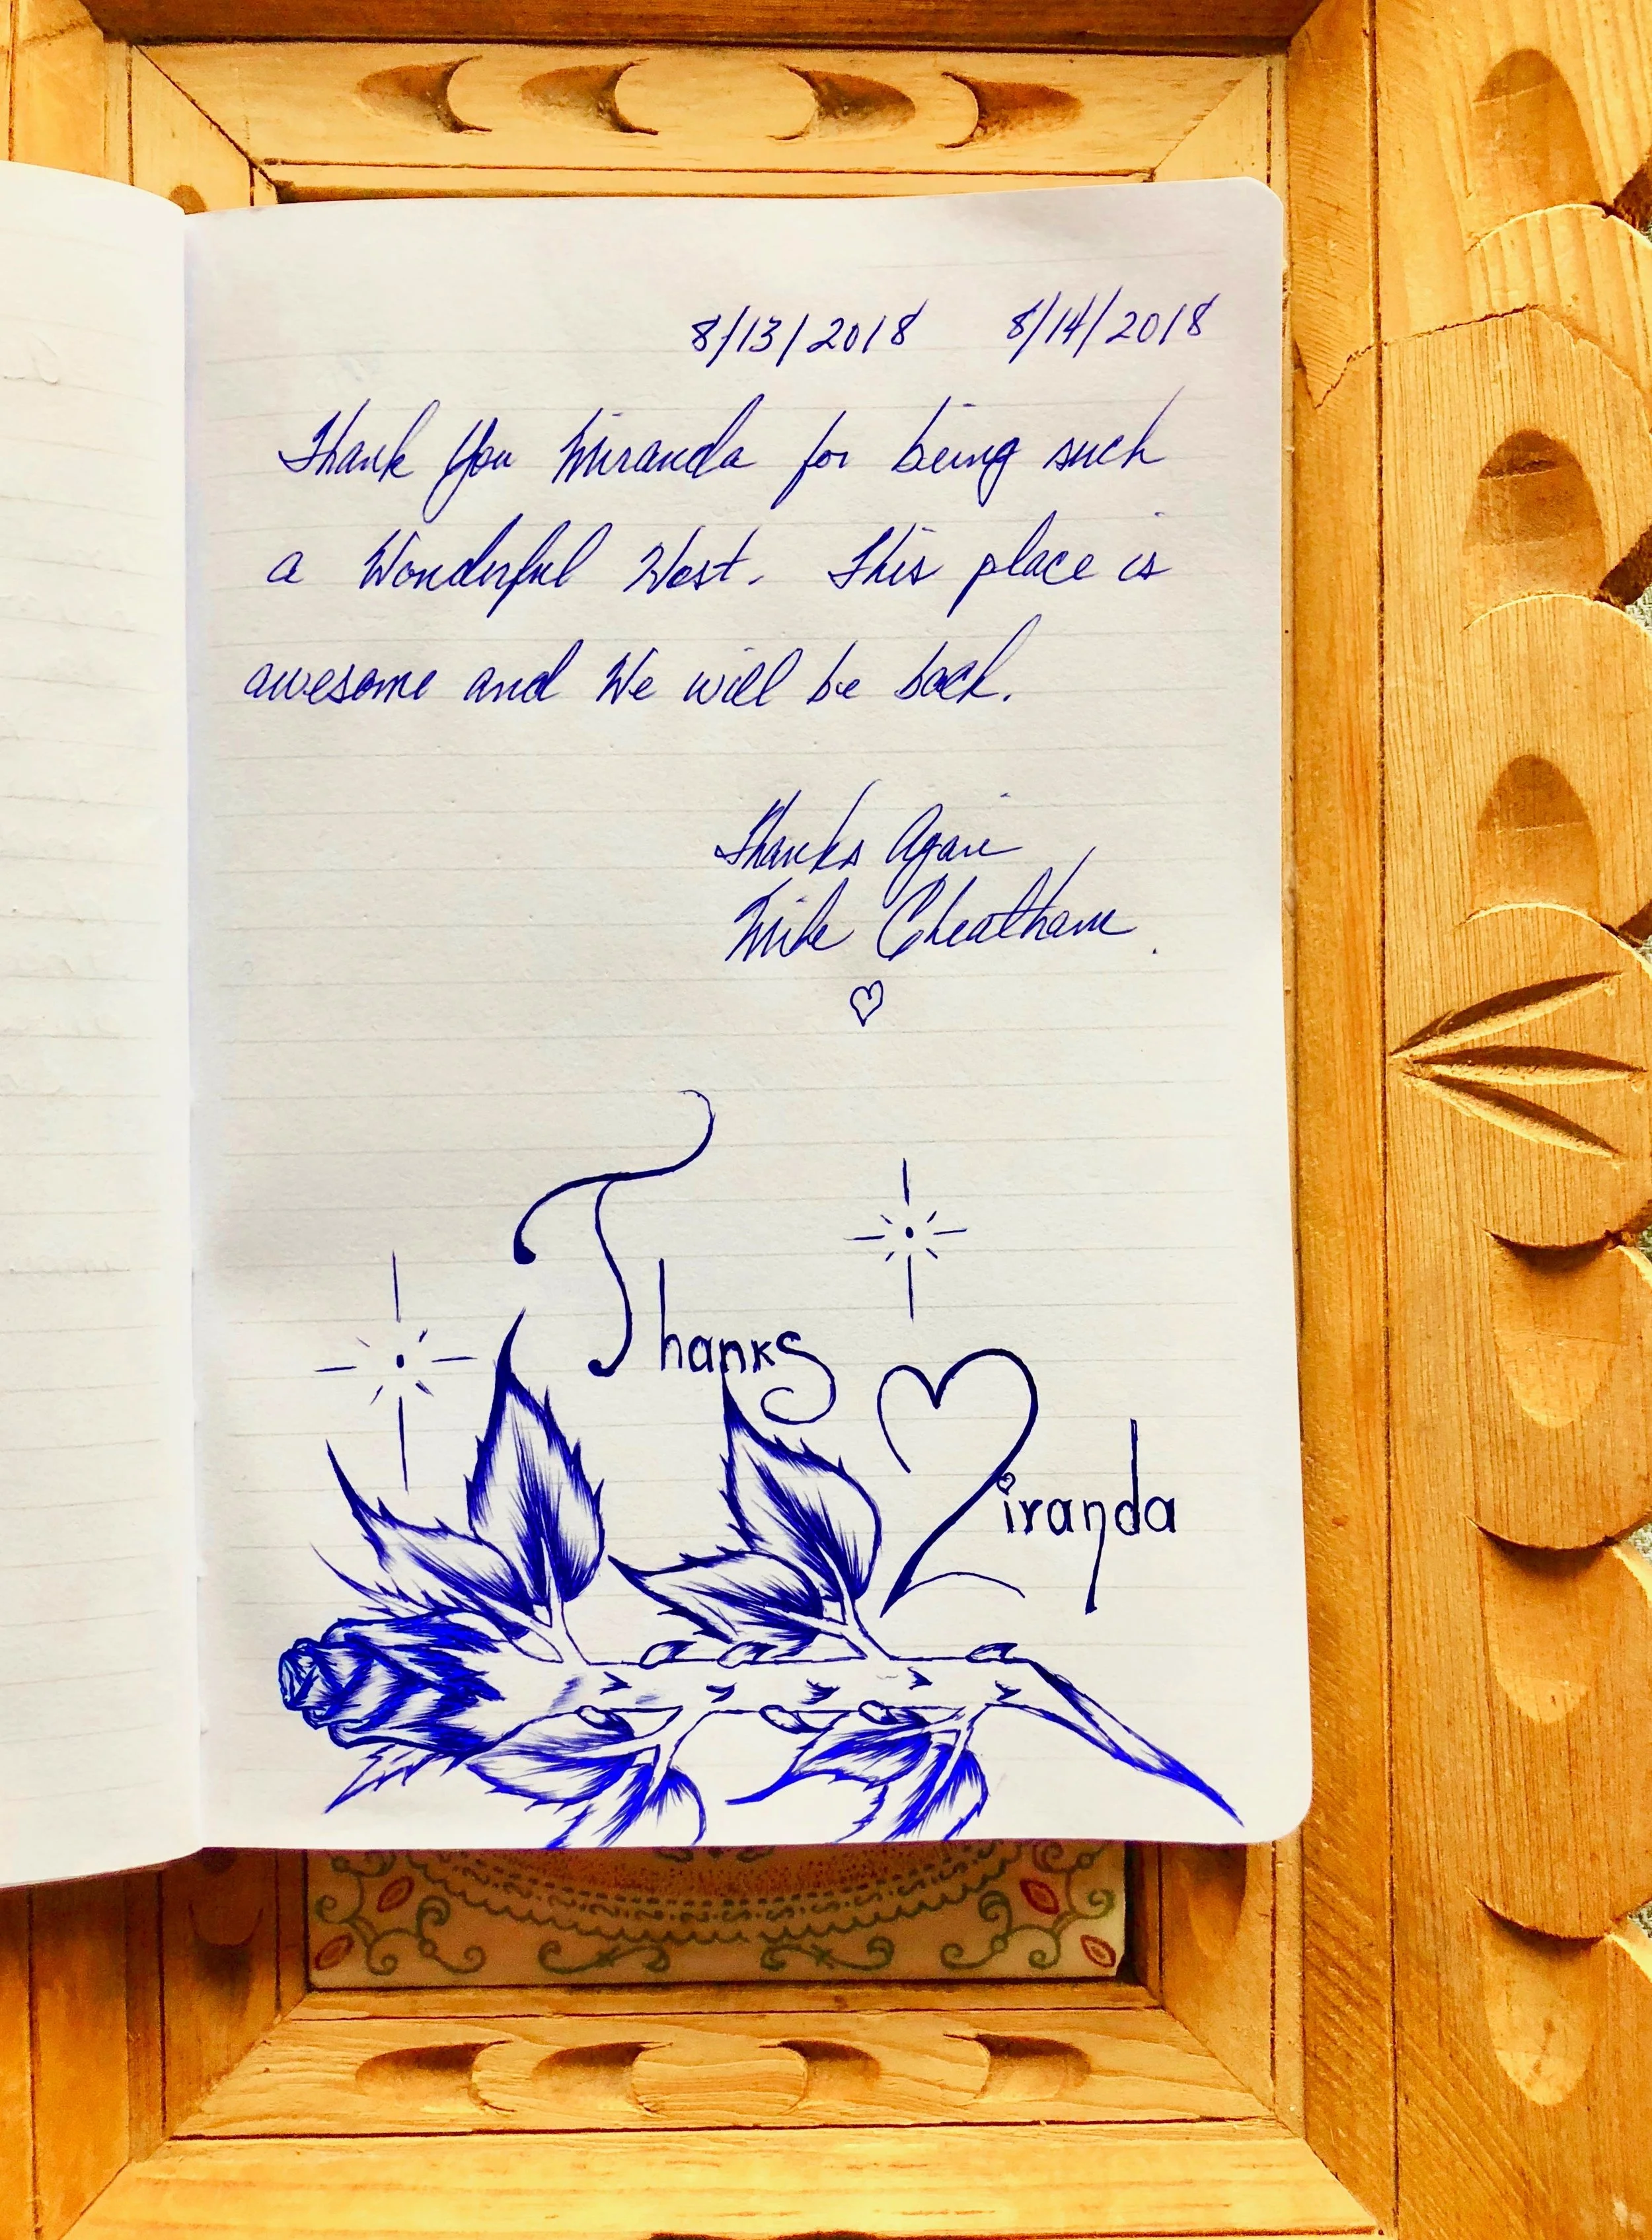 8/13/2018 8/14/2018
Thank You Miranda for being such
a Wonderful Host. This place is
awesome and We will be back.
Thanks Again
Mike Cheatham
Thanks
Miranda